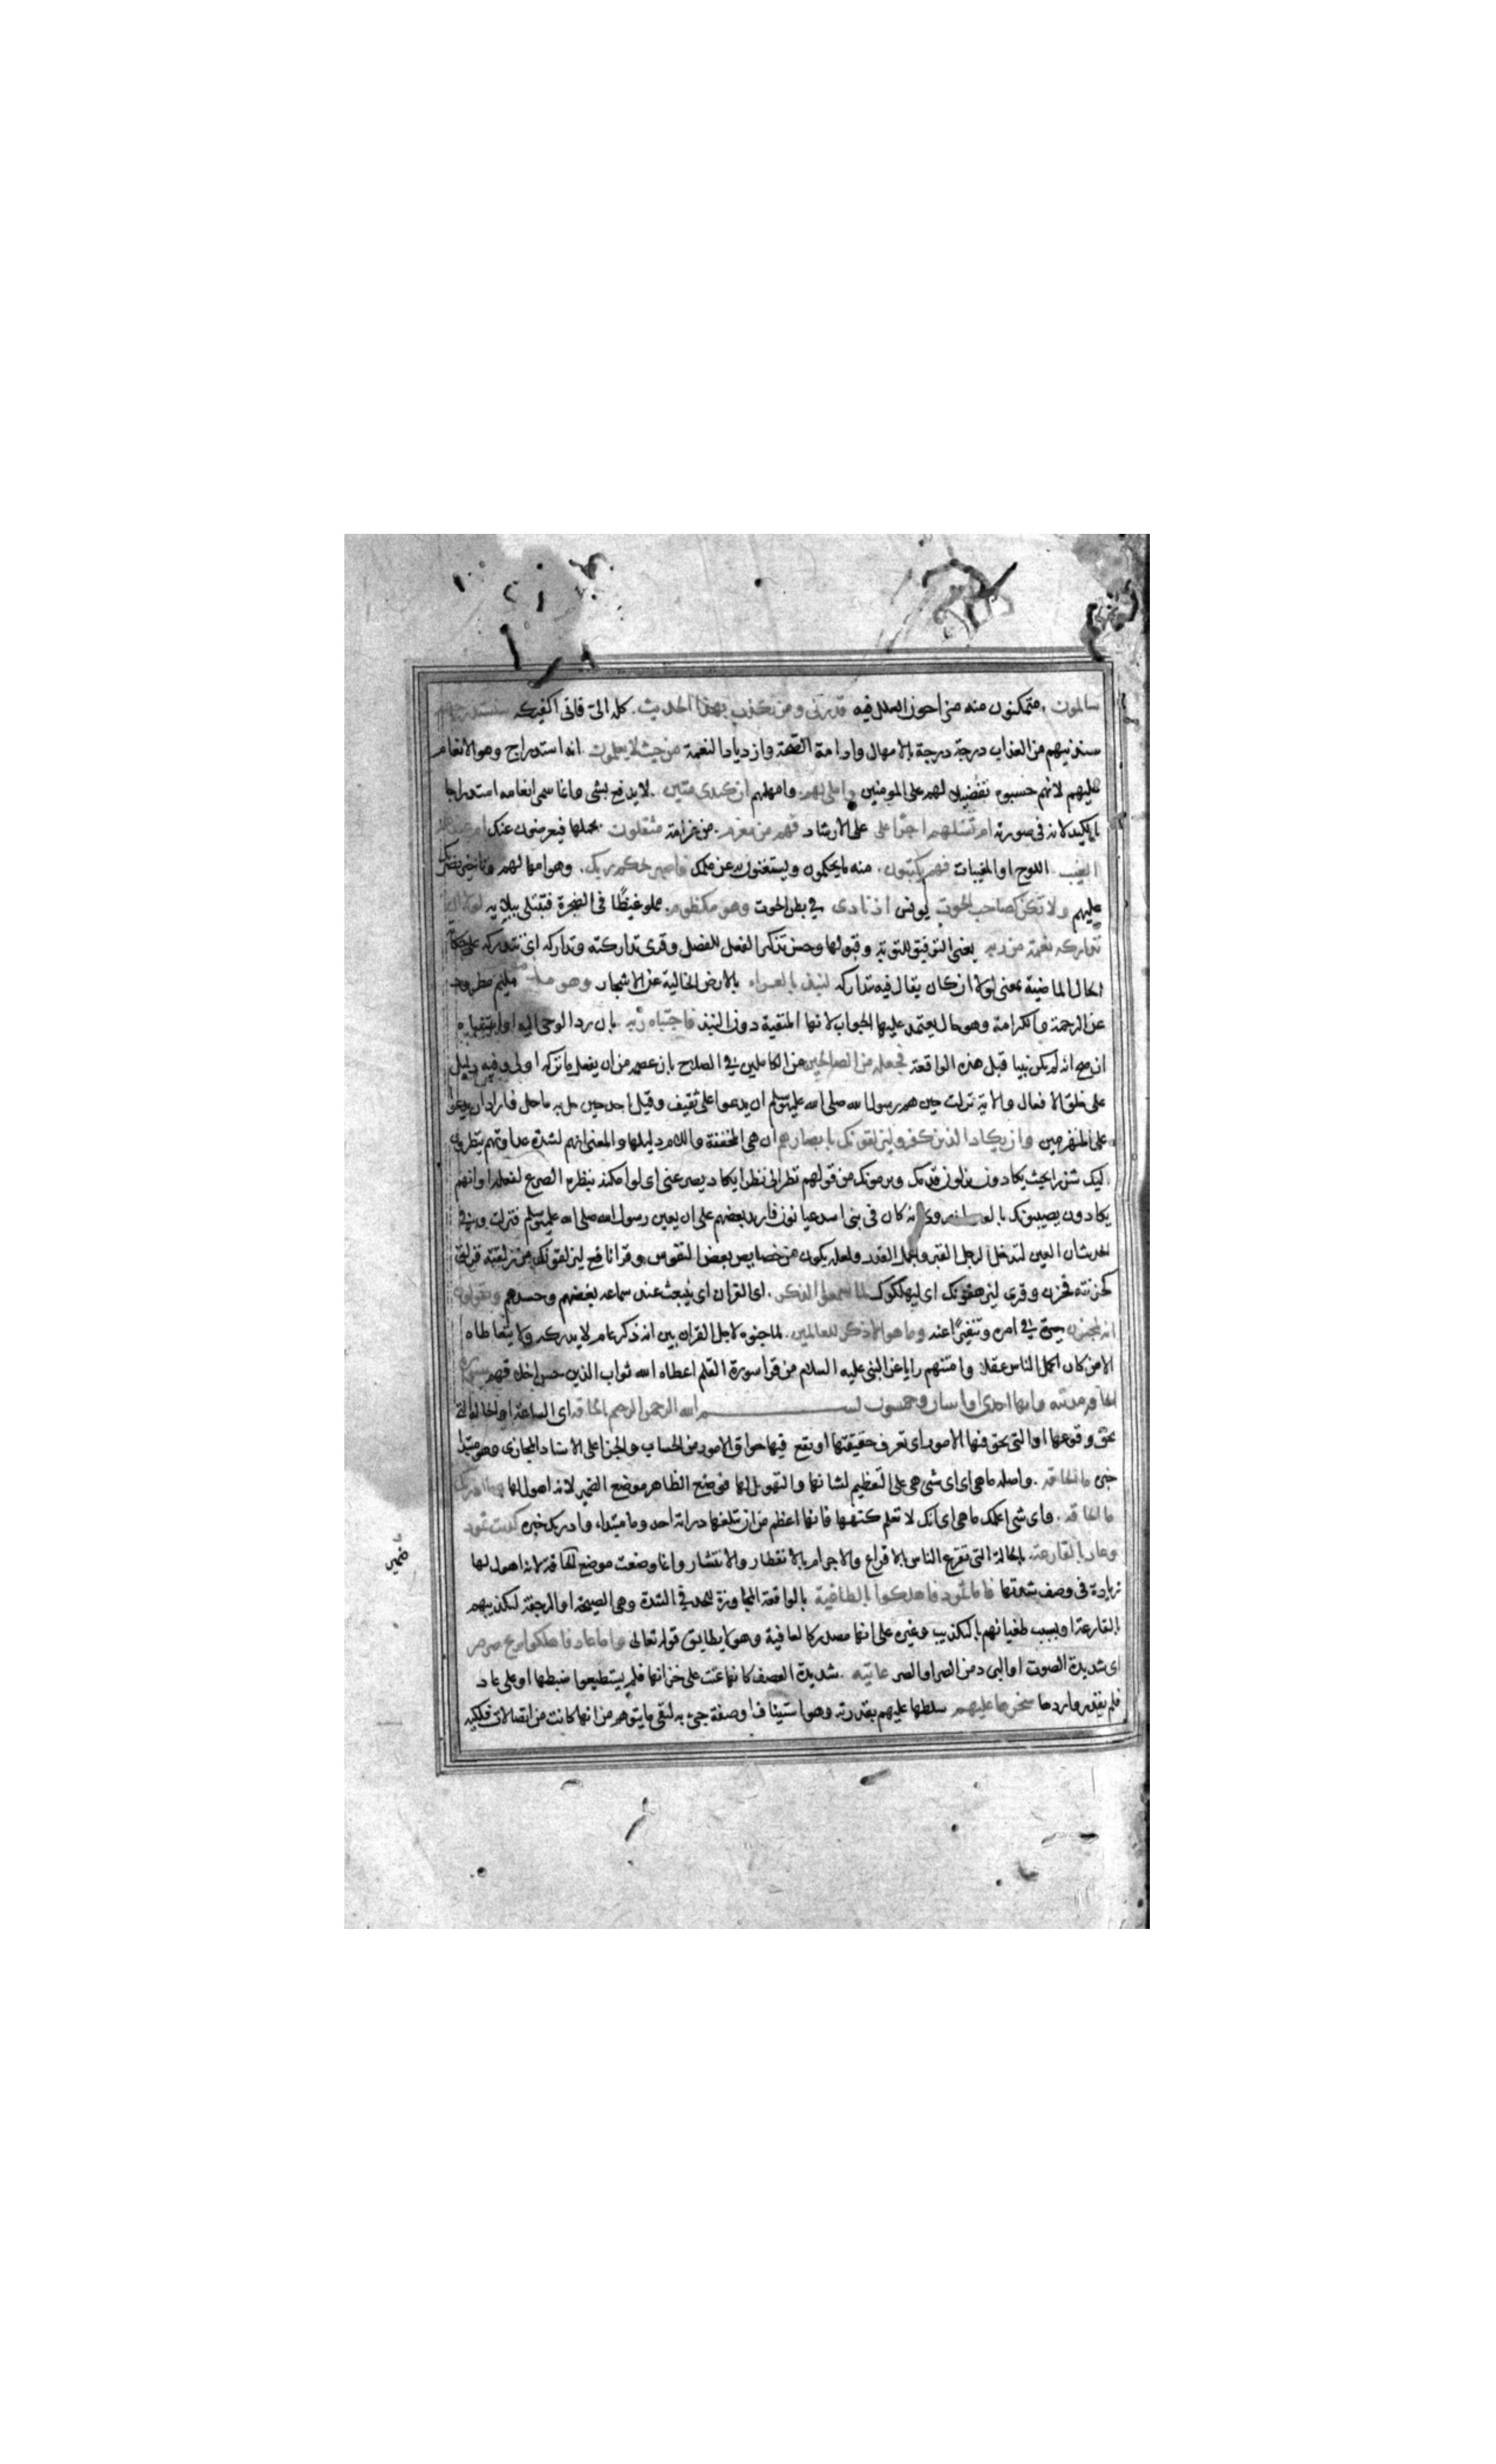 سالمون. متمكنون منه مزاحوا العلل فيه فذرني ومن يكذب بهذا الحديث. كله الىّ فانى اكفيكه سنستدرجهم
سندنيهم من العذاب درجة درجة بالامهال وادامة الصحّة وازدياد النعمة من حيث لا يعلمون. انه استدراج وهو الانعام
عليهم لانهم حسبوه تفضيلا لهم على المومنين واملى لهم. وامهلهم ان كيدى متين. لا يدفع بشى وانما سمى انعامه استدراجا
بالكيد لانه فى صورته ام تسئلهم اجرا على الارشاد فهم من مغرم. من غرامة مثقلون بحملها فيعرضون عنك ام عندهم
الغيب. اللوح او المغيبات فهم يكتبون. منه ما يحكمون ويستغنون به عن علمك فاصبر لحكم ربك. وهو امهالهم وتاخير نصرتك
عليهم ولا تكن كصاحب الحوت يونس اذ نادى فى بطن الحوت وهو مكظوم. مملو غيظًا فى الضجرة فتبتلى ببلايه لولا ان
تداركه نعمة من ربه يعنى التوفيق للتوبة وقبولها وحسن تذكير الفعل للفصل وقرى تداركته وتداركه اى تتداركه على حكاية
الحال الماضية بمعنى لولا ان كان يقال فيه تتداركه لنبذ بالعراء بالارض الخالية عن الاشجار وهو مذموم مليم مطرود
عن الرحمة والكرامة وهو حال يعتمد عليها الجواب لانها المنفية دون النبذ فاجتباه ربه بان رد الوحى اليه او استنباه
ان صح انه لم يكن نبيا قبل هذه الواقعة فجعله من الصالحين من الكاملين فى الصلاح بان عصمه من ان يفعل ما تركه اولى وفيه دليل
على خلق الافعال والاية نزلت حين هم رسول الله صلى الله عليه وسلم ان يدعوا على ثقيف وقيل احد حين حل به ما حل فاراد ان يدعو
على المنهزمين وان يكاد الذين كفروا ليزلقونك بابصارهم ان هى المخففة واللام دليلها والمعنى انهم لشدة عداوتهم ينظرون
اليك شزرا بحيث يكادون يزلون قدمك ويرمونك من قولهم نظر الى نظرا يكاد يصرعنى اى لو امكنه بنظره الصرع لفعله او انهم
يكادون يصيبونك بالعين روى انه كان فى بنى اسد عيانون فاراد بعضهم على ان يعين رسول الله صلى الله عليه وسلم فنزلت وفى
الحديث ان العين لتدخل الرجل القبر والجمل القدر ولعله يكون من خصايص بعض النفوس وقرا نافع ليزلقونك من زلقته فزلق
كحزنته فحزن وقرى ليزهقونك اى ليهلكونك لما سمعوا الذكر. اى القران اى ينبعث عند سماعه بغضهم وحسدهم ويقولون
انه لمجنون حيرة فى امره وتنفيرًا عنه وما هو الا ذكر للعالمين. لما جننوه لاجل القران بين انه ذكر عام لا يدركه ولا يتعاطاه
الا من كان اكمل الناس عقلا وامتنهم رايا عن النبى عليه السلام من قرا سورة القلم اعطاه الله ثواب الذين حسن اخلاقهم سورة
الحاقة مكية وايها احدى او اثنان وخمسون بسم الله الرحمن الرحيم الحاقة اى الساعة او الحالة التى
يحق وقوعها او التى يحق فيها الامور اى تعرف حقيقتها او تقع فيها حواق الامور من الحساب والجزا على الاسناد المجازى وهو مبتدا
خبره ما الحاقة. واصله ما هى اى اى شى هى على التعظيم لشانها والتهويل لها فوضع الظاهر موضع الضمير لانه اهول لها وما ادريك
ما الحاقة. واى شى اعلمك ما هى اى انك لا تعلم كنهها فانها اعظم من ان تبلغها دراية احد وما مبتدا، وادريك خبره كذبت ثمود
وعاد بالقارعة. بالحالة التى تقرع الناس بالاقراع والاجرام بالانفطار والانتشار وانما وضعت موضع الحاقة لانه اهول لها
زيادة فى وصف شدتها فاما ثمود فاهلكوا بالطاغية بالواقعة المجاوزة للحد فى الشدة وهى الصيحة او الرجفة لتكذيبهم
بالقارعة او بسبب طغيانهم بالتكذيب وغيره على انها مصدر كالعافية وهو لا يطابق قوله تعالى واما عاد فاهلكوا بريح صرصر
اى شديدة الصوت او البرد من الصر او الصر عاتية. شديدة العصف كانها عتت على خزانها فلم يستطيعوا ضبطها او على عاد
فلم يقدروا ردها سخرها عليهم سلطها عليهم بقدرته وهو استيناف او صفة جئ به لنفى ما يتوهم من انها كانت من اتصالات فلكية
ضمير